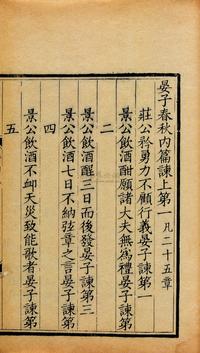 晏子春秋内篇諫上第一 凡二十五章
莊公矜勇力不顧行義晏子諫第一
景公飲酒酣願諸大夫無為禮晏子諫第
二
景公飲酒酲三日而後發晏子諫第三
景公飲酒七日不納弦章之言晏子諫第
四
景公飲酒不卹天災致能歌者晏子諫第
五